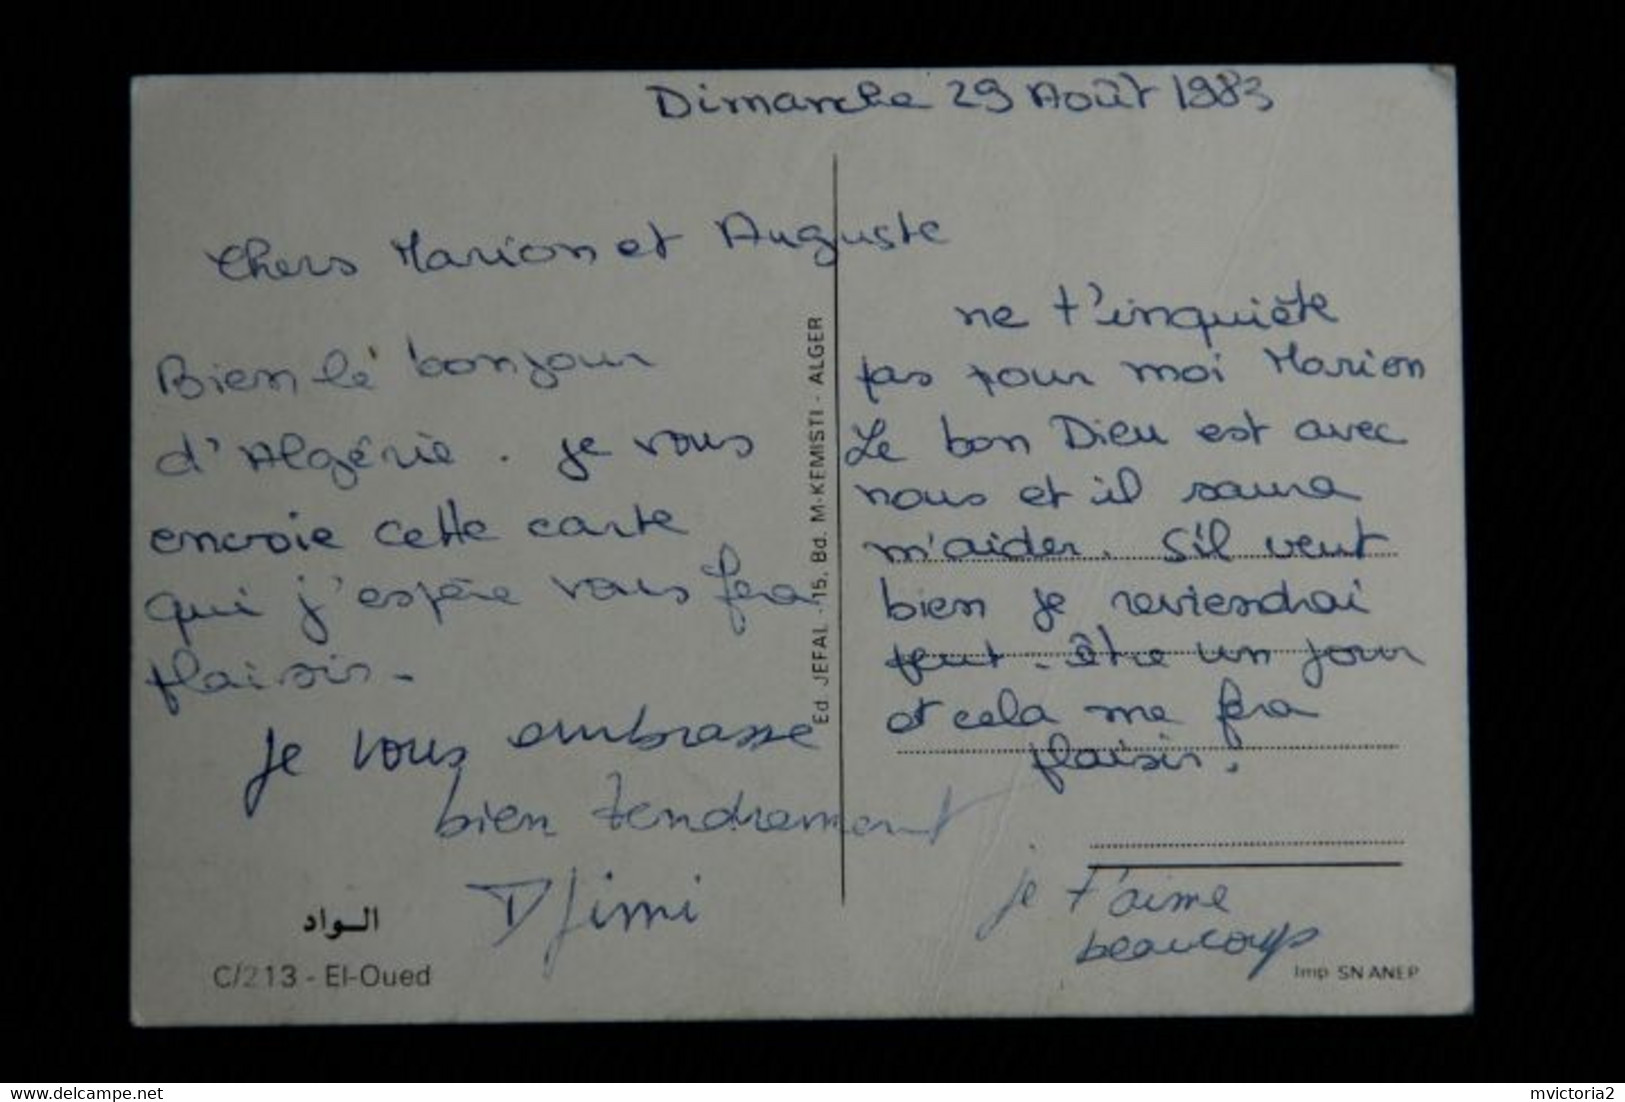 Dimanche 29 Août 1983
Chers Marion et Auguste
Bien lé bonjour
d'Algérie. je vous
envoie cette carte
qui j'espère vous fera
plaisir.
je vous embrasse
bien tendrement
Djimi
ne t'inquiète
pas pour moi Marion
Le bon Dieu est avec
nous et il saura
m'aider. S'il veut
bien je reviendrai
peut-être un jour
et cela me fera
plaisir.
je t'aime
beaucoup
Ed. JEFAL - 15, Bd. M-KEMISTI - ALGER
الـواد
C/213 - El-Oued
Imp SN ANEP
delcampe.net
mvictoria2